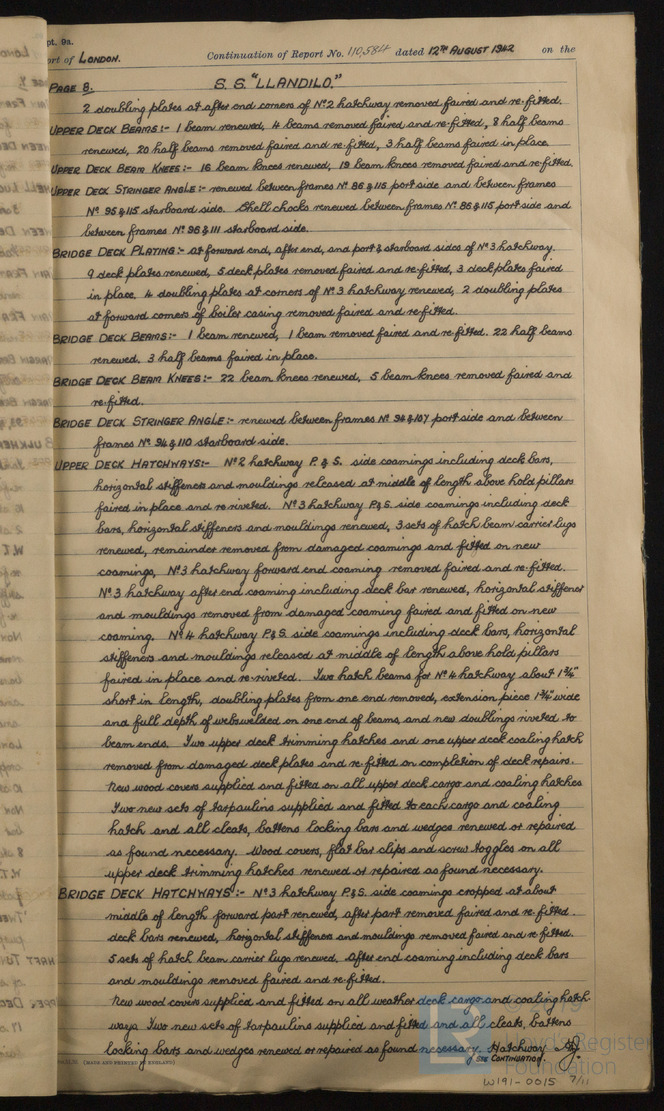 pt. 9a.
ort of LONDON. Continuation of Report No. 110,584 dated 12TH AUGUST 1942 on the
PAGE 8. S.S. "LLANDILO."
2 doubling plates at after end corners of No 2 hatchway removed faired and re-fitted.
UPPER DECK BEAMS:- 1 beam renewed, 4 beams removed faired and re-fitted, 8 half beams
renewed, 20 half beams removed faired and re-fitted, 3 half beams faired in place.
UPPER DECK BEAM KNEES:- 16 beam knees renewed, 19 beam knees removed faired and re-fitted.
UPPER DECK STRINGER ANGLE:- renewed between frames Nos 86 & 115 port side and between frames
Nos 95 & 115 starboard side. Shell chocks renewed between frames Nos 86 & 115 port side and
between frames Nos 96 & 111 starboard side.
BRIDGE DECK PLATING:- at forward end, after end, and port & starboard sides of No 3 hatchway.
9 deck plates renewed, 5 deck plates removed faired and re-fitted, 3 deck plates faired
in place. 4 doubling plates at corners of No 3 hatchway renewed, 2 doubling plates
at forward corners of boiler casing removed faired and re-fitted.
BRIDGE DECK BEAMS:- 1 beam renewed, 1 beam removed faired and re-fitted. 22 half beams
renewed. 3 half beams faired in place.
BRIDGE DECK BEAM KNEES:- 22 beam knees renewed, 5 beam knees removed faired and
re-fitted.
BRIDGE DECK STRINGER ANGLE:- renewed between frames Nos 94 & 107 port side and between
frames Nos 94 & 110 starboard side.
UPPER DECK HATCHWAYS:- No 2 hatchway P. & S. side coamings including deck bars,
horizontal stiffeners and mouldings released at middle of length above hold pillars
faired in place and re-riveted. No 3 hatchway P. & S. side coamings including deck
bars, horizontal stiffeners and mouldings renewed, 3 sets of hatch beam carrier lugs
renewed, remainder removed from damaged coamings and fitted on new
coamings, No 3 hatchway forward end coaming removed faired and re-fitted.
No 3 hatchway after end coaming including deck bar renewed, horizontal stiffener
and mouldings removed from damaged coaming faired and fitted on new
coaming. No 4 hatchway P. & S. side coamings including deck bars, horizontal
stiffeners and mouldings released at middle of length above hold pillars
faired in place and re-riveted. Two hatch beams for No 4 hatchway about 1¾"
short in length, doubling plates from one end removed, extension piece 1¾" wide
and full depth of web welded on one end of beams, and new doublings riveted to
beam ends. Two upper deck trimming hatches and one upper deck coaling hatch
removed from damaged deck plates and re-fitted on completion of deck repairs.
New wood covers supplied and fitted on all upper deck cargo and coaling hatches
Two new sets of tarpaulins supplied and fitted to each cargo and coaling
hatch and all cleats, battens locking bars and wedges renewed or repaired
as found necessary. Wood covers, flat bar clips and screw toggles on all
upper deck trimming hatches renewed or repaired as found necessary.
BRIDGE DECK HATCHWAYS:- No 3 hatchway P. & S. side coamings cropped at about
middle of length forward part renewed, after part removed faired and re-fitted.
deck bars renewed, horizontal stiffeners and mouldings removed faired and re-fitted.
5 sets of hatch beam carrier lugs renewed, after end coaming including deck bars
and mouldings removed faired and re-fitted.
New wood covers supplied and fitted on all weather deck cargo and coaling hatch-
ways Two new sets of tarpaulins supplied and fitted and all cleats, battens
locking bars and wedges renewed or repaired as found necessary. Hatchway
SEE CONTINUATION.
(MADE AND PRINTED IN ENGLAND)
© 2019
Lloyd's Register
Foundation
W191-0015 7/11